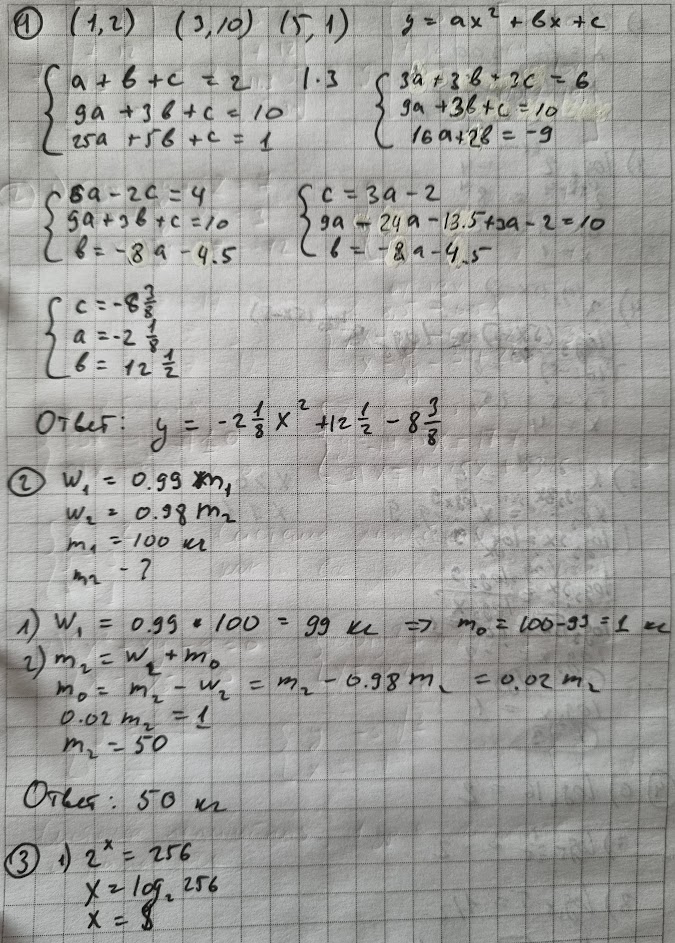 ① (1,2) (3,10) (5,1) y = ax² + bx + c
{ a + b + c = 2 | · 3 { 3a + 3b + 3c = 6
9a + 3b + c = 10 9a + 3b + c = 10
25a + 5b + c = 1 16a + 2b = -9
{ 6a - 2c = 4 { c = 3a - 2
9a + 3b + c = 10 9a - 24a - 13.5 + 3a - 2 = 10
b = -8a - 4.5 b = -8a - 4.5
{ c = -8 3/8
a = -2 1/8
b = 12 1/2
Ответ: y = -2 1/8 x² + 12 1/2 - 8 3/8
② W₁ = 0.99 m₁
W₂ = 0.98 m₂
m₁ = 100 кг
m₂ - ?
1) W₁ = 0.99 · 100 = 99 кг => m₀ = 100 - 99 = 1 кг
2) m₂ = W₂ + m₀
m₀ = m₂ - W₂ = m₂ - 0.98 m₂ = 0.02 m₂
0.02 m₂ = 1
m₂ = 50
Ответ: 50 кг
③ 1) 2ˣ = 256
x = log₂ 256
x = 8